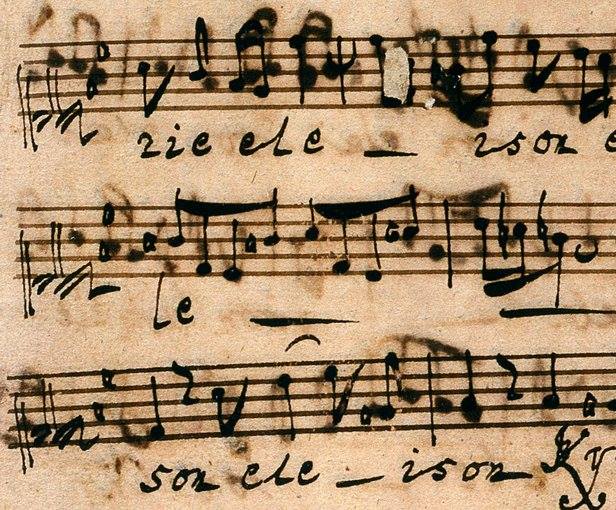 rie ele — ison e
le —
son ele — ison Ky